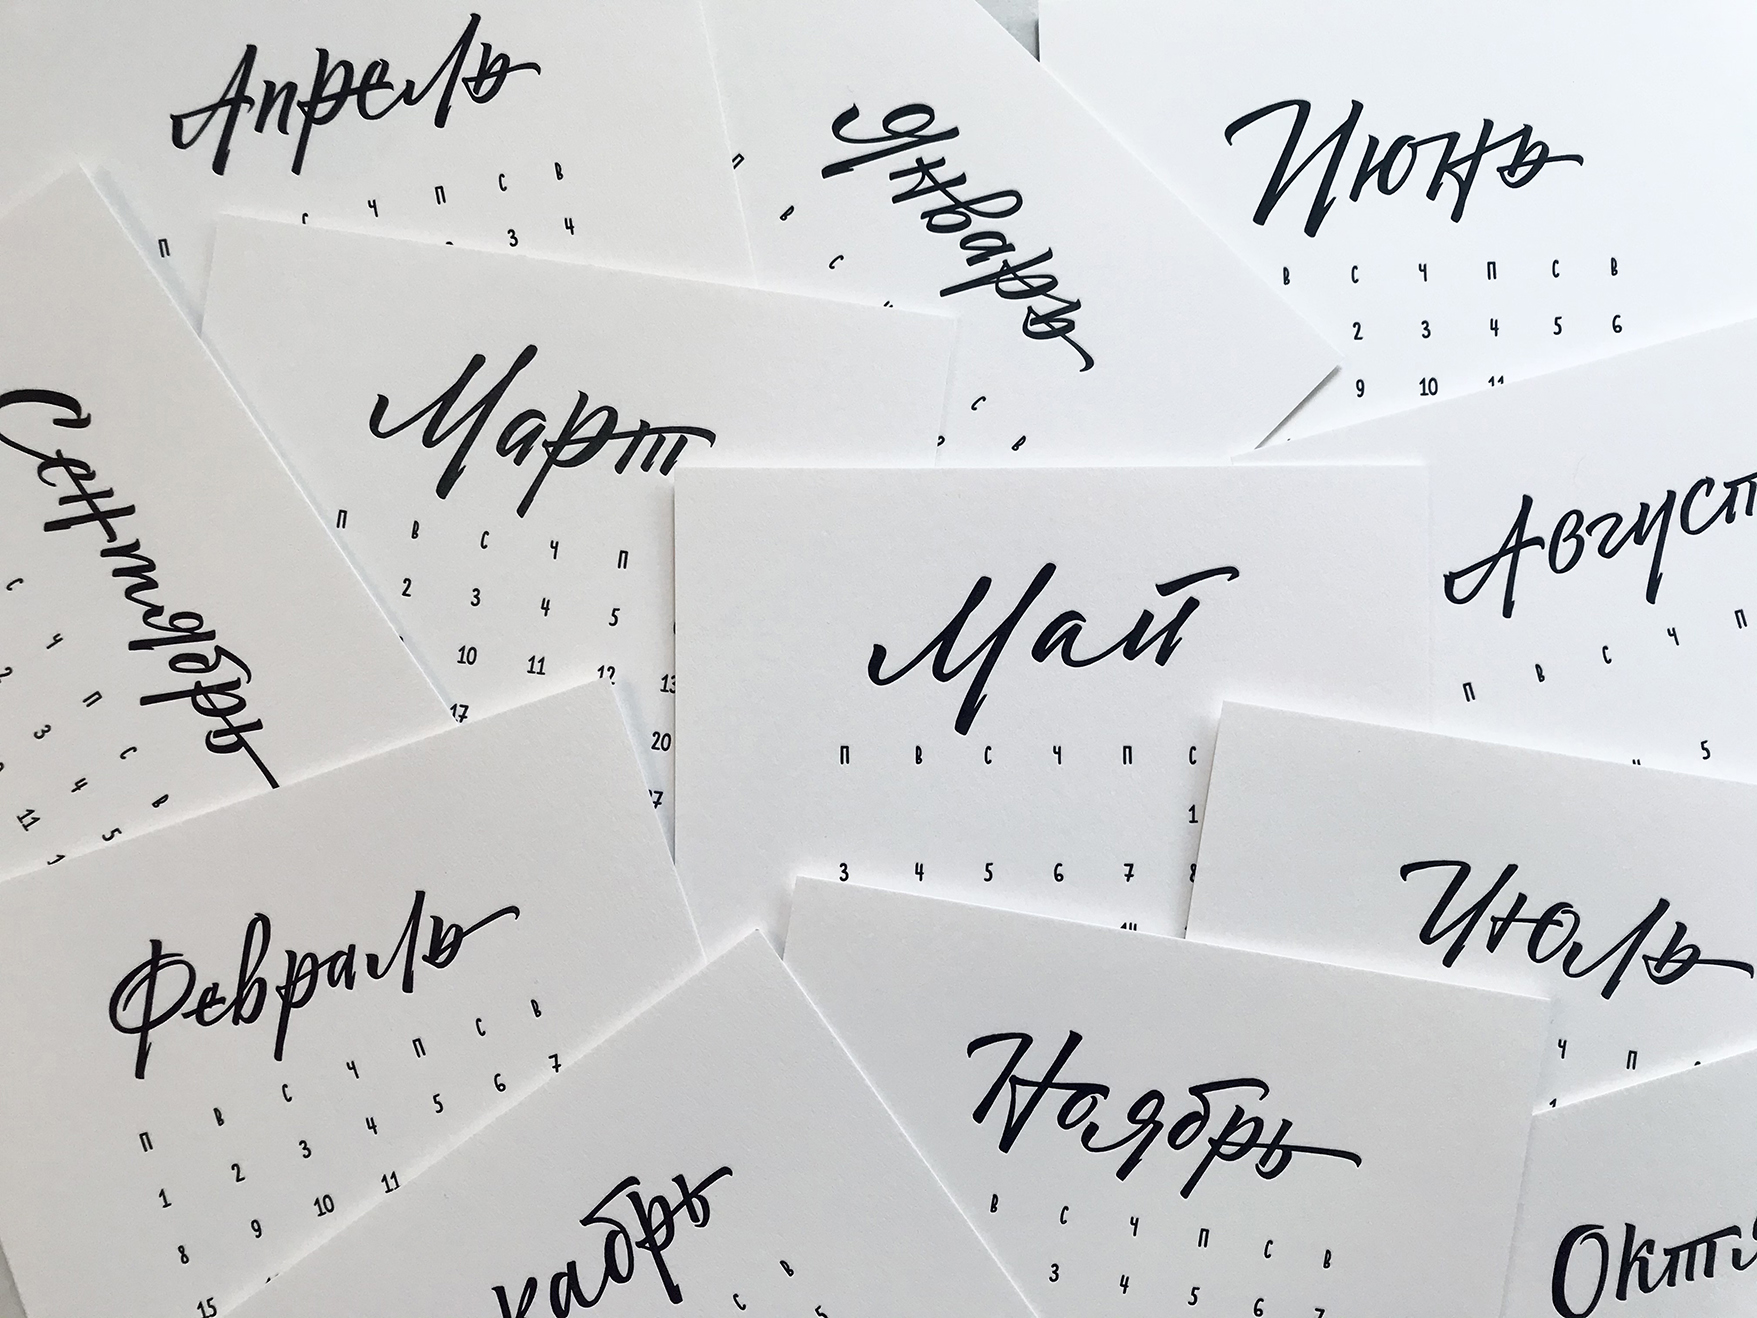 Апрель
Ч П С В
3 4
П
Январь
В
С
С
В
Июнь
В С Ч П С В
2 3 4 5 6
9 10 11
Март
П В С Ч П
2 3 4 5
10 11 12 13
17
20
27
Сентябрь
С
Ч
П
2
3
С
4
В
11
5
Май
П В С Ч П С
1
3 4 5 6 7 8
14
Август
П В С Ч П
5
Июль
Ч П
1
Февраль
П В С Ч П С В
1 2 3 4 5 6 7
8 9 10 11
15
кабрь
С В
5
Ноябрь
В С Ч П С В
3 4 5 6 7
Октя